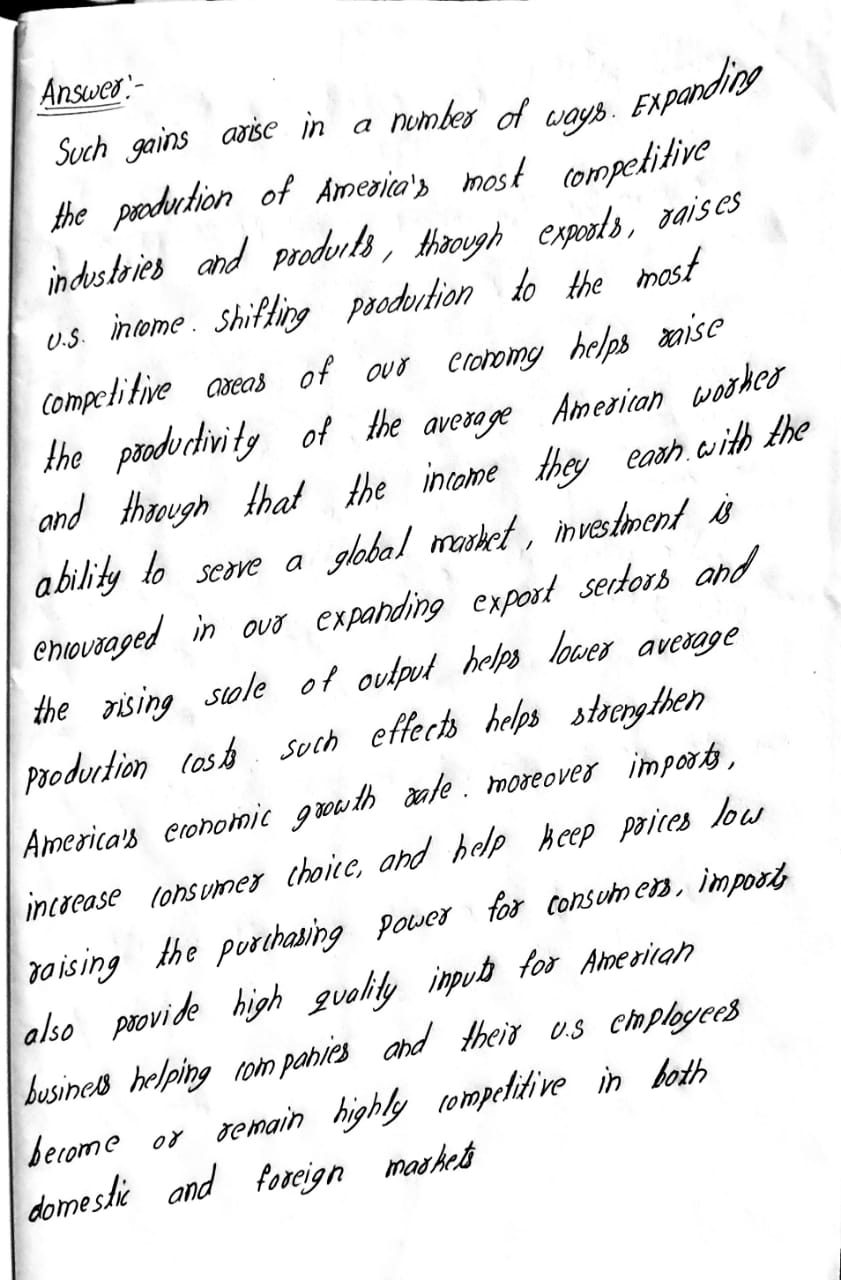 Answer:-
Such gains arise in a number of ways. Expanding
the production of America's most competitive
industries and products, through exports, raises
U.S. income. Shifting production to the most
competitive areas of our economy helps raise
the productivity of the average American worker
and through that the income they earn. with the
ability to serve a global market, investment is
encouraged in our expanding export sectors and
the rising scale of output helps lower average
production costs. such effects helps strengthen
America's economic growth rate. moreover imports,
increase consumer choice, and help keep prices low
raising the purchasing power for consumers, imports
also provide high quality inputs for American
business helping companies and their U.S employees
become or remain highly competitive in both
domestic and foreign markets